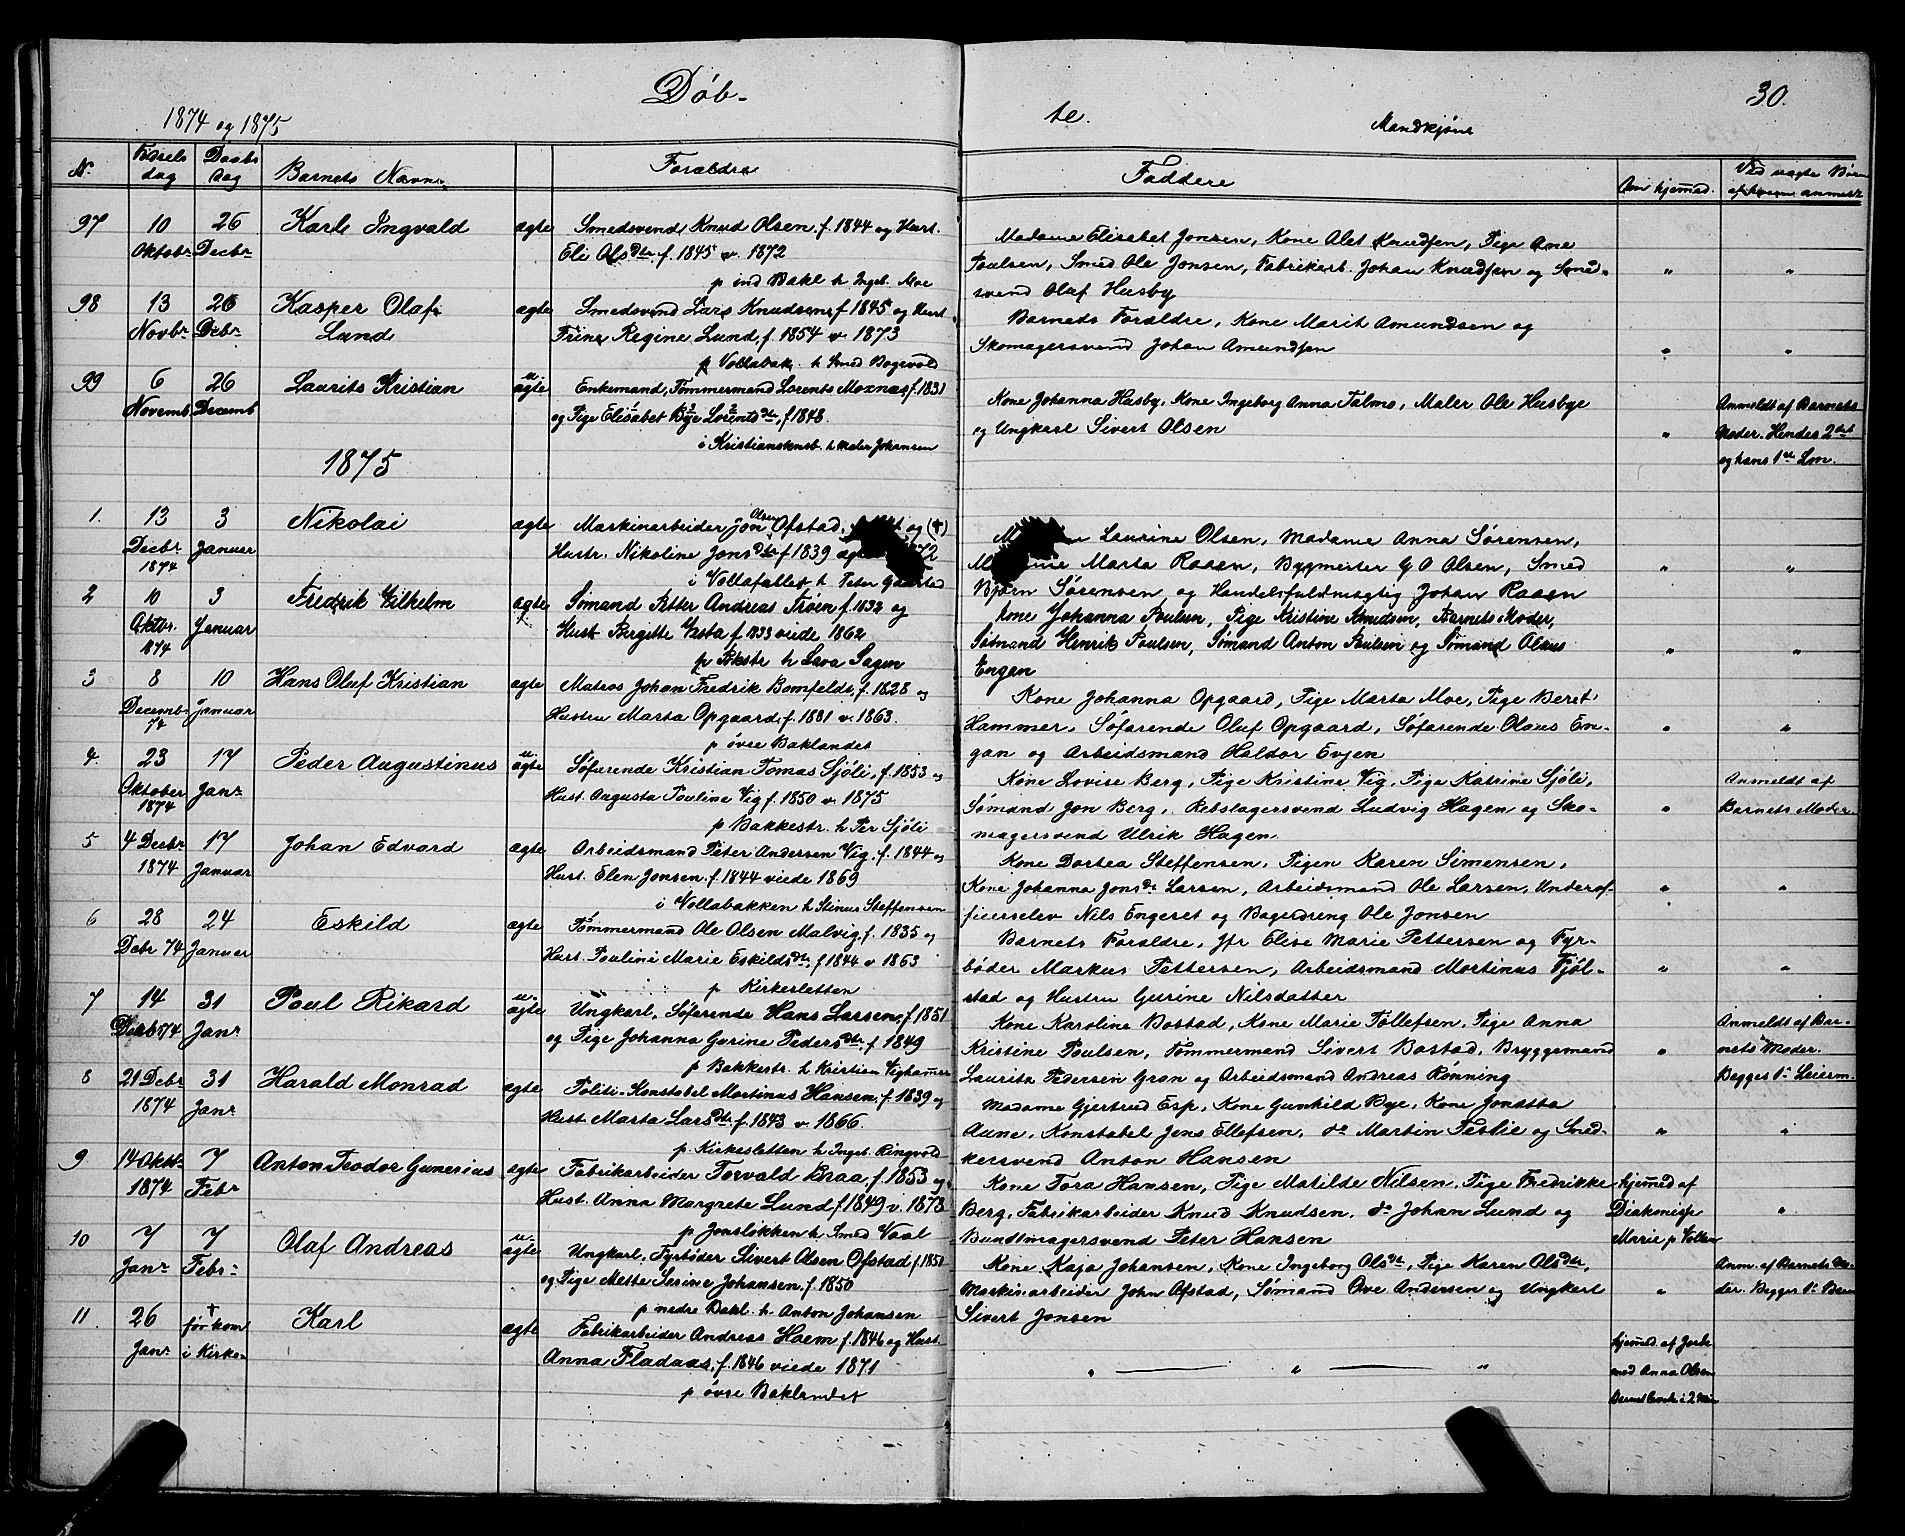 Døb-
te.
30.
1874 og 1875
Mandkjøns
N.
Fødsels
dag
Daabs
dag
Barnets Navn
Forældre
Faddere
Om hjemmed.
Ved uægte Børn
af hvem anmeldt
97
10
Oktobr
26
Decbr
Karl Ingvald
ægte
Smedsvend Knud Olsen, f. 1844 og Hust.
Eli Olsdtr. f. 1845 v. 1872
p ind Bakl h Ingeb. Moe
Madame Elisabet Jonsen, Kone Olet Knudsen, Pige Ane
Poulsen, Smed Ole Jonsen, Fabrikarb. Johan Knudsen og Smed-
svend Olaf Husby
98
13
Novbr
26
Debr
Kasper Olaf
Lund
ægte
Smedsvend Lars Knudsen, f 1845 og Hust
Trine Regine Lund, f. 1854 v. 1873
p Vollabak. h Smed Bogevold
Barnets Forældre, Kone Marit Amundsen og
Skomagersvend Johan Amundsen
99
6
Novemb
26
Decemb
Laurits Kristian
u-
ægte
Enkemand, Tømmermand Lorents Moxnes, f. 1831
og Pige Elisabet Bye Lorentsdtr, f 1848.
i Kristianskensb. h Maler Johansen
Kone Johanna Husby, Kone Ingeborg Anna Talmo, Maler Ole Husbye
og Ungkarl Sivert Olsen
Anmeldt af Barnets
Moder. Hendes 2det
og hans 1ste Lm.
1875
1.
13
Decbr
1874
3
Januar
Nikolai
ægte
Maskinarbeider Jon Olsen Ofstad, og (+)
Hustr. Nikoline Jonsdtr f 1839
i Vollafallet h Peter
Laurine Olsen, Madame Anna Sørensen,
Marta Raaen, Bygmester G O Olsen, Smed
Bjørn Sørensen, og Handelsfuldmægtig Johan Raaen
2
10
Oktbr.
1874
3
Januar
Fredrik Vilhelm
ægte
Sømand Petter Andreas Trøen f. 1832 og
Hust Birgitte Ysta f. 1833 viede 1862
p Bakste h Lava Sagen
Kone Johanna Poulsen, Pige Kristine Knudsen, Barnets Moder,
Sømand Henrik Poulsen, Sømand Anton Poulsen og Sømand Olaus
Engen
3
8
Decemb
74
10
Januar
Hans Oluf Kristian
ægte
Matros Johan Fredrik Bomfeldt, f. 1828 og
Hustru Marta Opgaard, f. 1831 v. 1863.
p øvre Baklandet
Kone Johanna Opgaard, Pige Marta Moe, Pige Beret
Hammer, Søfarende Oluf Opgaard, Søfarende Olaus En-
gan og Arbeidsmand Haldor Evjen
4.
23
Oktober
1874
17
Janr
Peder Augustinus
u-
ægte
Søfarende Kristian Tomas Sjøli, f. 1853 og
Hust. Augusta Pouline Vig f. 1850 v. 1875
p Bakkestr. h Per Sjøli
Kone Lovise Berg, Pige Kristine Vig, Pige Katrine Sjøli,
Sømand Jon Berg, Rebslagersvend Ludvig Hagen og Sko-
magersvend Ulrik Hagen
Anmeldt af
Barnets Moder.
5
4 Decbr
1874
17
Januar
Johan Edvard
ægte
Arbeidsmand Peter Andersen Vig, f. 1844 og
Hust. Elen Jonsen, f. 1844 viede 1869
i Vollabakken h Stinus Steffensen
Kone Dortea Steffensen, Pigen Karen Simensen,
Kone Johanna Jonsdtr Larsen, Arbeidsmand Ole Larsen, Underof-
ficerselev Nils Engeset og Bagerdreng Ole Jonsen
6
28
Debr 74
24
Januar
Eskild
ægte
Tømmermand Ole Olsen Malvig, f. 1835 og
Hust. Pouline Marie Eskildsdtr, f 1844 v 1863
p Kirkesletten
Barnets Forældre, Jfr Elise Marie Pettersen og Fyr-
bøder Markus Pettersen, Arbeidsmand Martinus Fjøl-
stad og Hustru Gurine Nilsdatter
7
14
Decb 74
31
Janr
Poul Rikard
u-
ægte
Ungkarl, Søfarende Hans Larsen, f. 1851
og Pige Johanna Gurine Pedersdtr, f. 1849
p Bakkestr. h Kristian Vighammer
Kone Karoline Bostad, Kone Marie Tollefsen, Pige Anna
Kristine Poulsen, Tømmermand Sivert Bostad, Bryggemand
Laurits Pedersen Gran og Arbeidsmand Andreas Rønning
Anmeldt af Bar-
nets Moder.
Begges 1ste Leierm.
8
21 Debr
1874
31
Janr
Harald Monrad
ægte
Politi-Konstabel Martinus Hansen, f. 1839 og
Hust Marta Larsdtr. f. 1843 v. 1866.
p. Kirkesletten h Ingeb. Ringvold
Madame Gjertrud Esp, Kone Gunhild Bye, Kone Jonetta
Aune, Konstabel Jens Ellefsen, do Martin Teslie og Sned-
kersvend Anton Hansen
9
14 Oktbr
1874
7
Febr
Anton Teodor Gunerius
ægte
Fabrikarbeider Torvald Knaa, f. 1853 og
Hust. Anna Margrete Lund, f 1849 v. 1873
p Jonsløkken h Smed Vaal
Kone Tora Hansen, Pige Matilde Nilsen, Pige Fredrikke
Berg, Fabrikarbeider Knud Knudsen, do Johan Lund og
Bundtmagersvend Peter Hansen
hjemmed af
Diakonisse
Marie p Volden
10
7
Janr
7
Febr
Olaf Andreas
u-
ægte
Ungkarl, Fyrbøder Sivert Olsen Ofstad f. 1850
og Pige Mette Serine Johansen, f. 1850
p nedre Bakl. h. Anton Johansen
Kone Kaja Johansen, Kone Ingeborg Olsdtr, Pige Karen Olsdtr,
Maskinarbeider John Ofstad, Sømand Ove Andersen og Ungkarl
Sivert Jonsen
Anm. af Barnets Mo-
der. Begges 1ste Barn
11.
26
Janr
+
før kom
i Kirke
Karl
ægte
Fabrikarbeider Andreas Hoem f. 1846 og Hust.
Anna Fladaas, f. 1846 viede 1871
p øvre Baklandet
hjemmed. af Jorde-
mod Anna Olsen
Barnet levede i 2 Min